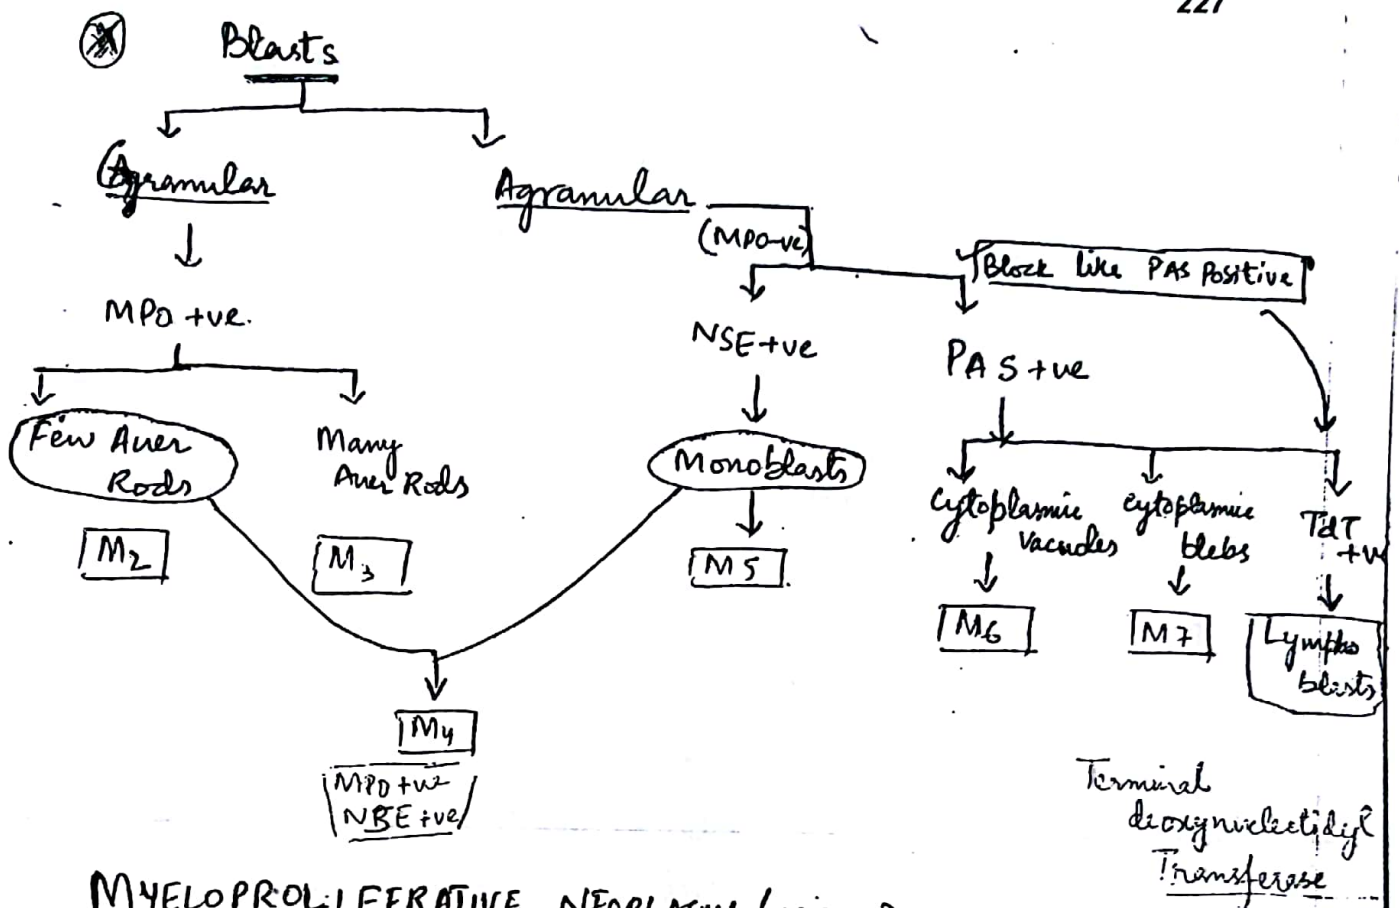 227
Blasts
(Agranular
Agranular
(MPO-ve)
Block like PAS Positive
MPO +ve.
NSE+ve
PAS +ve
Few Auer
Rods
Many
Auer Rods
Monoblasts
Cytoplasmic
Vacuoles
cytoplasmic
blebs
TdT
+v
M2
M3
M5
M6
M7
Lympho
blasts
M4
MPO +ve
NBE +ve
Terminal
deoxynucleotidyl
Transferase
MYELOPROLIFERATIVE NEOPLASMS